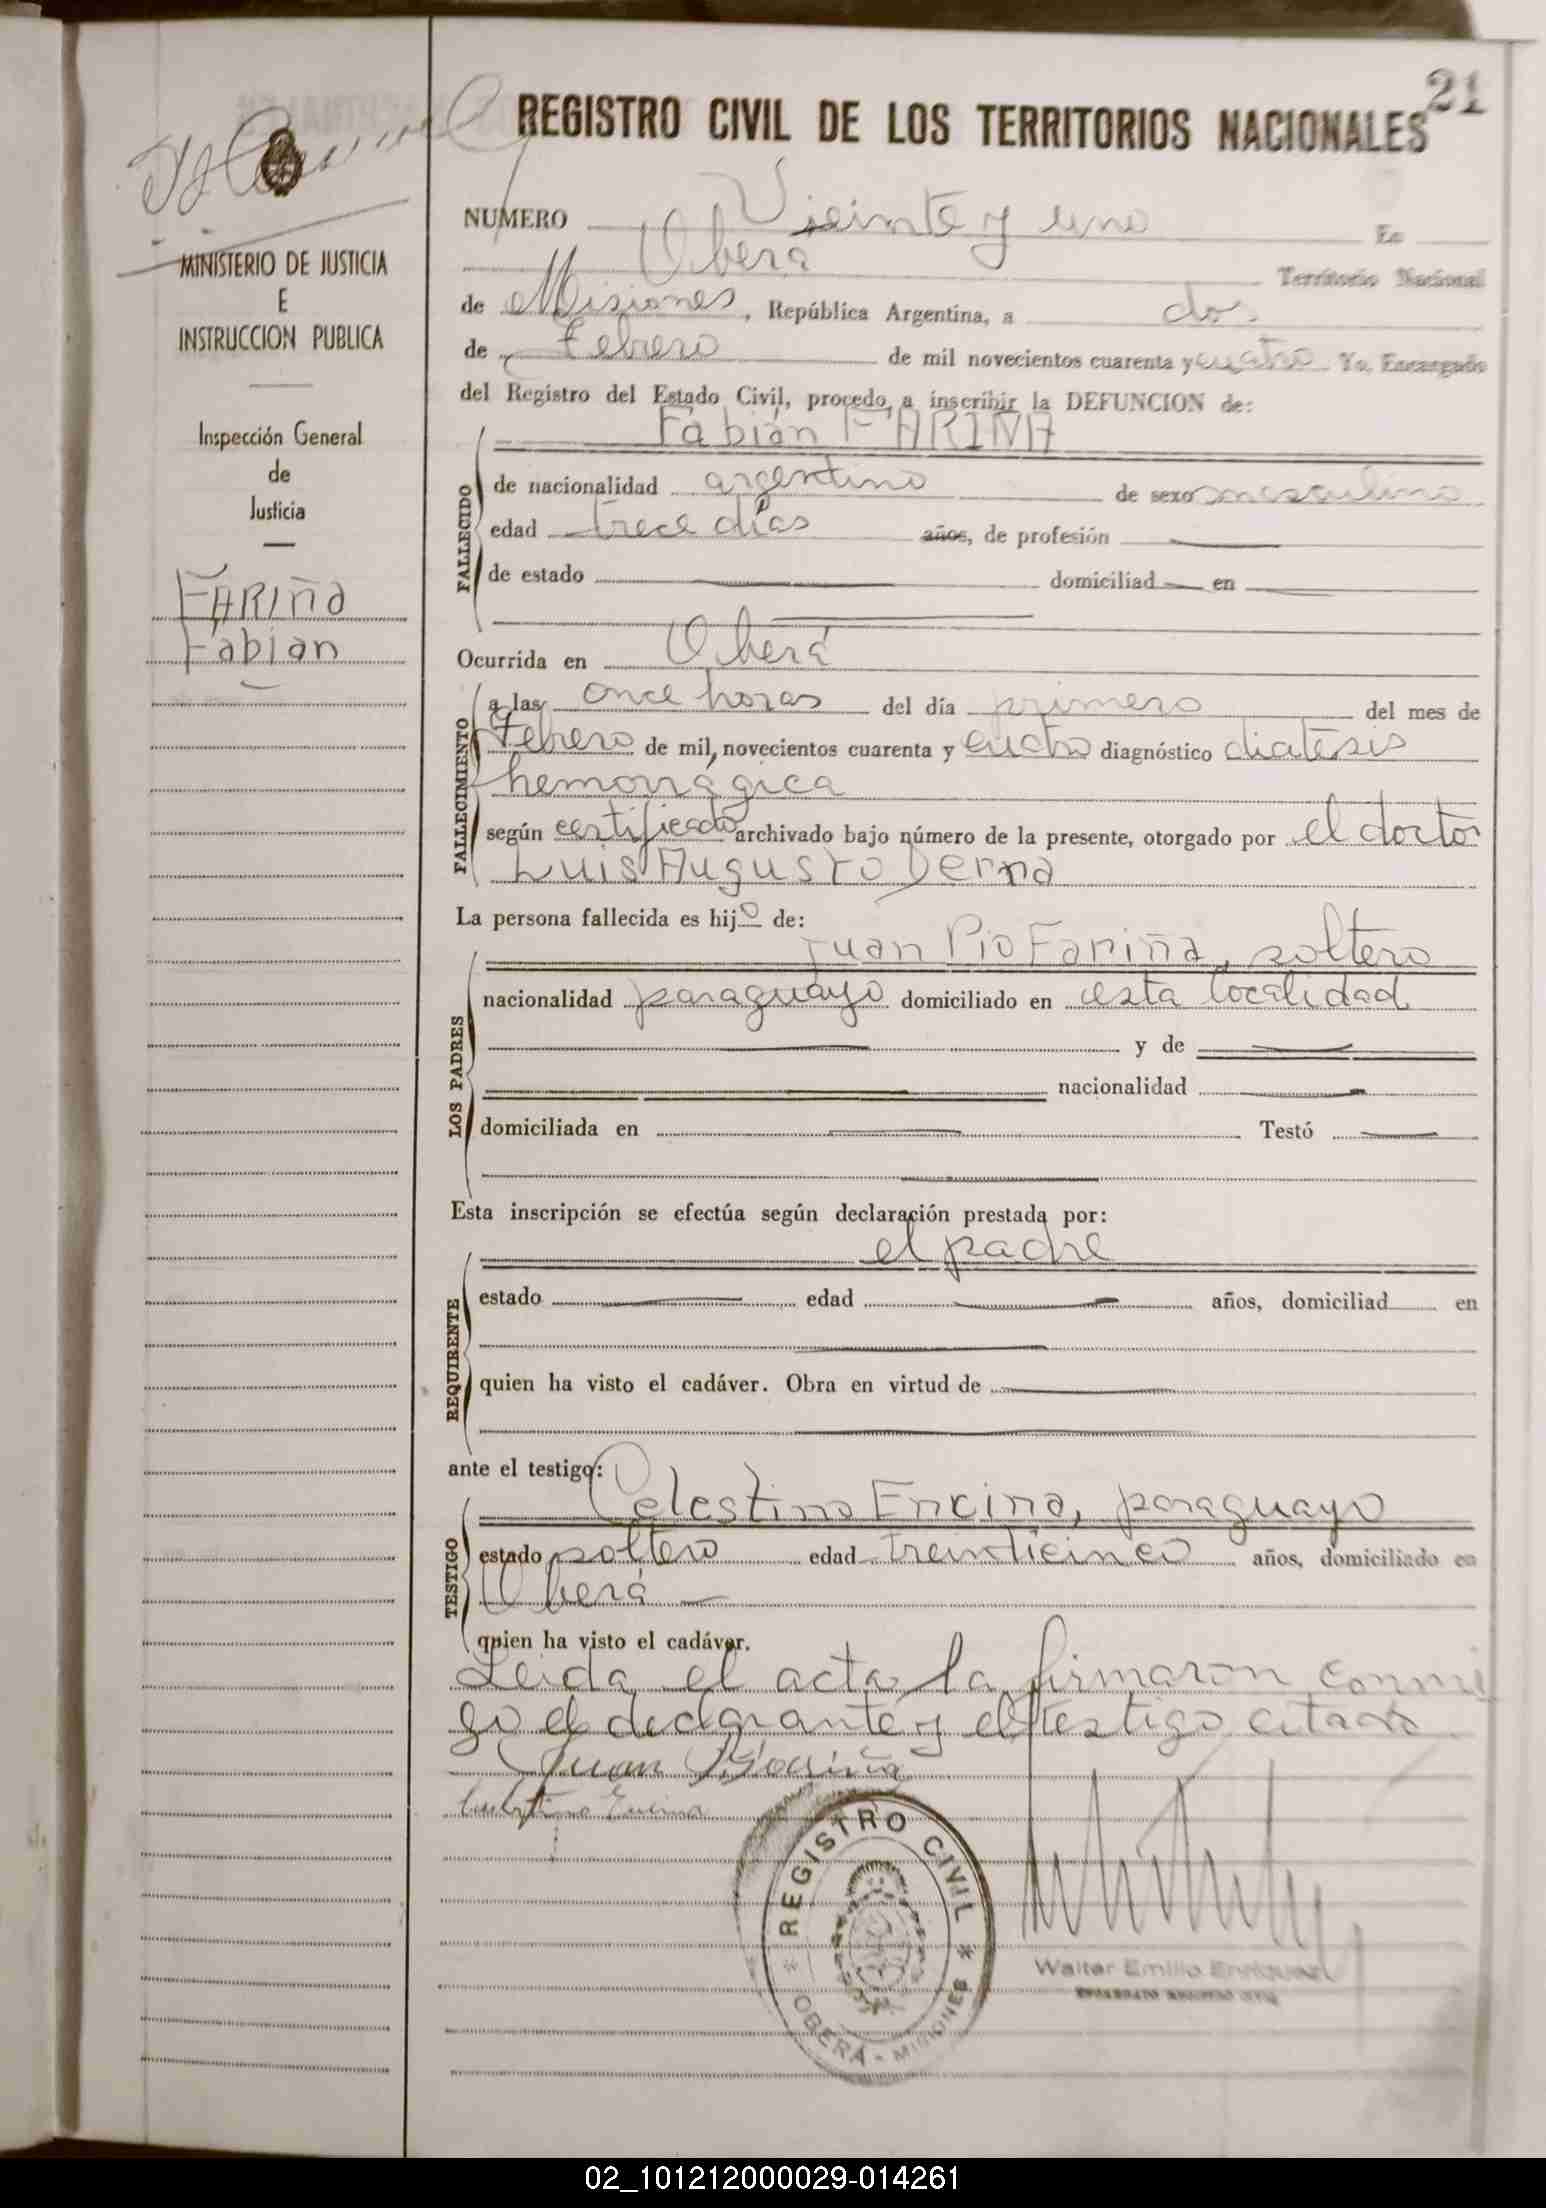 21
REGISTRO CIVIL DE LOS TERRITORIOS NACIONALES
MINISTERIO DE JUSTICIA
E
INSTRUCCION PUBLICA
Inspección General
de
Justicia
FARIÑA
Fabian
NUMERO Veinte y uno En
Oberá Territorio Nacional
de Misiones, República Argentina, a dos
de Febrero de mil novecientos cuarenta y cuatro Yo, Encargado
del Registro del Estado Civil, procedo, a inscribir la DEFUNCION de:
Fabián FARIÑA
FALLECIDO
de nacionalidad argentino de sexo masculino
edad trece días años, de profesión
de estado domiciliad en
Ocurrida en Oberá
FALLECIMIENTO
a las once horas del día primero del mes de
Febrero de mil novecientos cuarenta y cuatro diagnóstico diatesis
hemorragica
según certificado archivado bajo número de la presente, otorgado por el doctor
Luis Augusto Derna
La persona fallecida es hijo de:
LOS PADRES
Juan Pio Fariña, soltero
nacionalidad paraguayo domiciliado en esta localidad
y de
nacionalidad
domiciliada en Testó
Esta inscripción se efectúa según declaración prestada por:
REQUIRENTE
el padre
estado edad años, domiciliad en
quien ha visto el cadáver. Obra en virtud de
ante el testigo:
TESTIGO
Celestino Encina, paraguayo
estado soltero edad treinticinco años, domiciliado en
Oberá
quien ha visto el cadáver.
Leida el acta la firmaron conmi
go el declarante y el testigo citado
Juan P. Fariña
Celestino Encina
REGISTRO CIVIL
OBERÁ - MISIONES
Walter Emilio Enriquez
ENCARGADO REGISTRO CIVIL
02_101212000029-014261